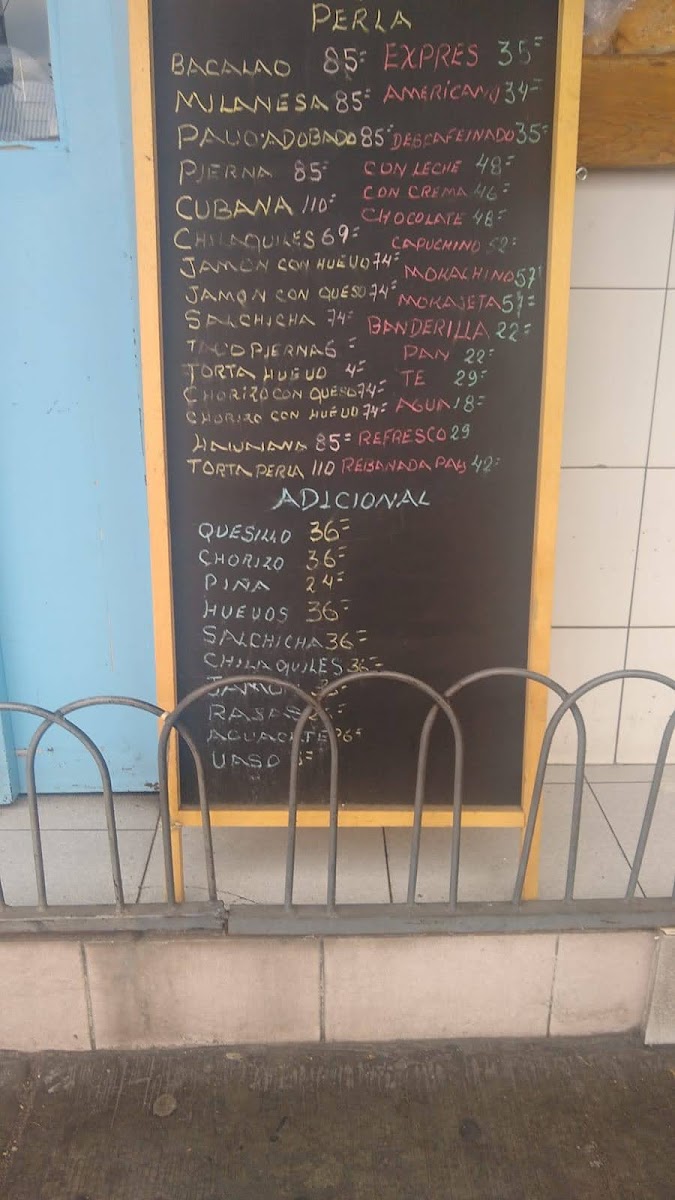 PERLA
BACALAO 85=
MILANESA 85=
PAVO·ADOBADO 85=
PIERNA 85=
CUBANA 110=
CHILAQUILES 69=
JAMON CON HUEVO 74=
JAMON CON QUESO 74=
SALCHICHA 74=
TACO PIERNA 6 =
TORTA HUEVO 4=
CHORIZO CON QUESO 74=
CHORIZO CON HUEVO 74=
HAWAIANA 85=
TORTA PERLA 110
EXPRES 35=
AMERICANO 34=
DESCAFEINADO 35=
CON LECHE 48=
CON CREMA 46=
CHOCOLATE 48=
CAPUCHINO 52=
MOKACHINO 57=
MOKAJETA 57=
BANDERILLA 22=
PAN 22=
TE 29=
AGUA 18=
REFRESCO 29
REBANADA PAY 42=
ADICIONAL
QUESILLO 36=
CHORIZO 36=
PIÑA 24=
HUEVOS 36=
SALCHICHA 36=
CHILAQUILES 36=
JAMON
RAJAS
AGUACATE
VASO